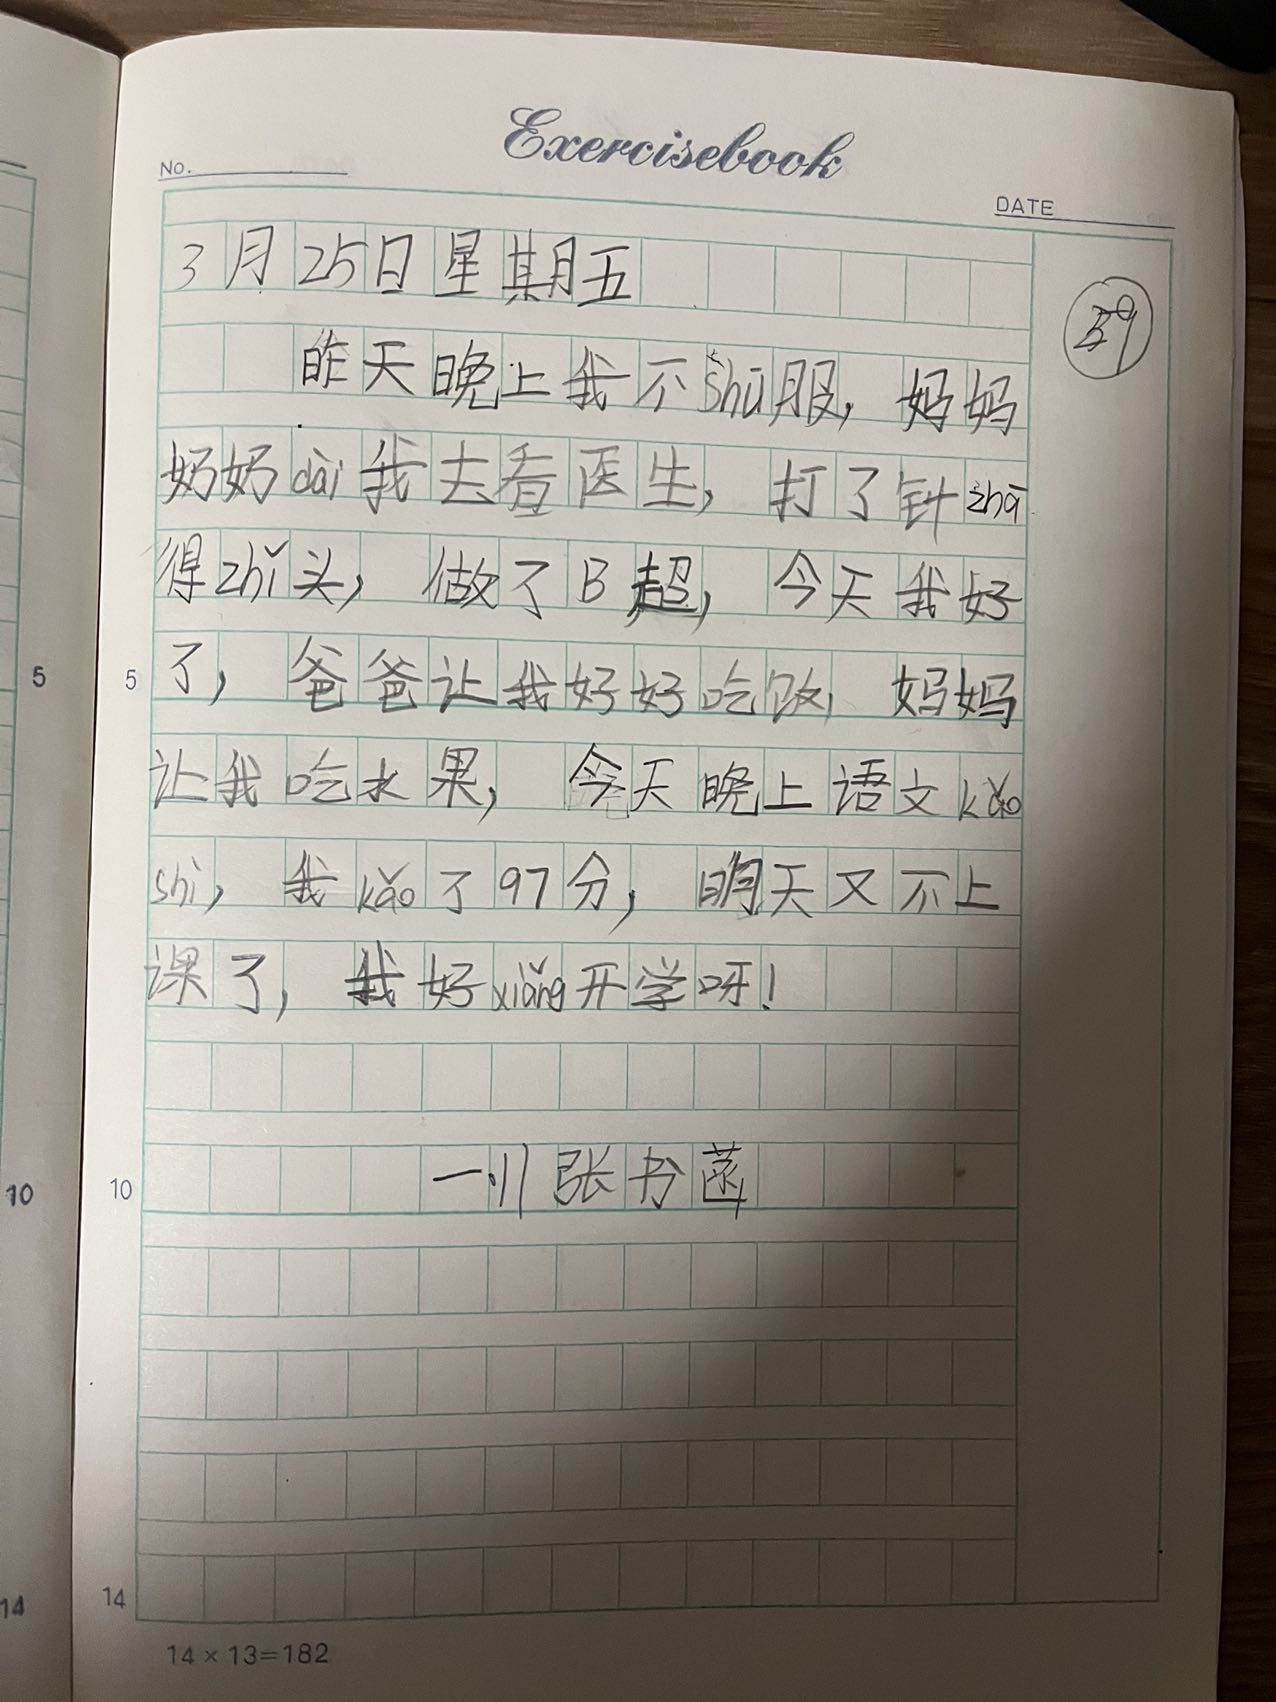 Exercisebook
NO.
DATE
3月25日星期五
59
昨天晚上我不shū服，妈妈
奶奶dài我去看医生，打了针zhā
得zhǐ头，做了B超，今天我好
了，爸爸让我好好吃饭，妈妈
5
5
让我吃水果，今天晚上语文kǎo
shì，我kǎo了97分，明天又不上
课了，我好xiǎng开学呀！
10
10
张书菡
14
14
14×13=182